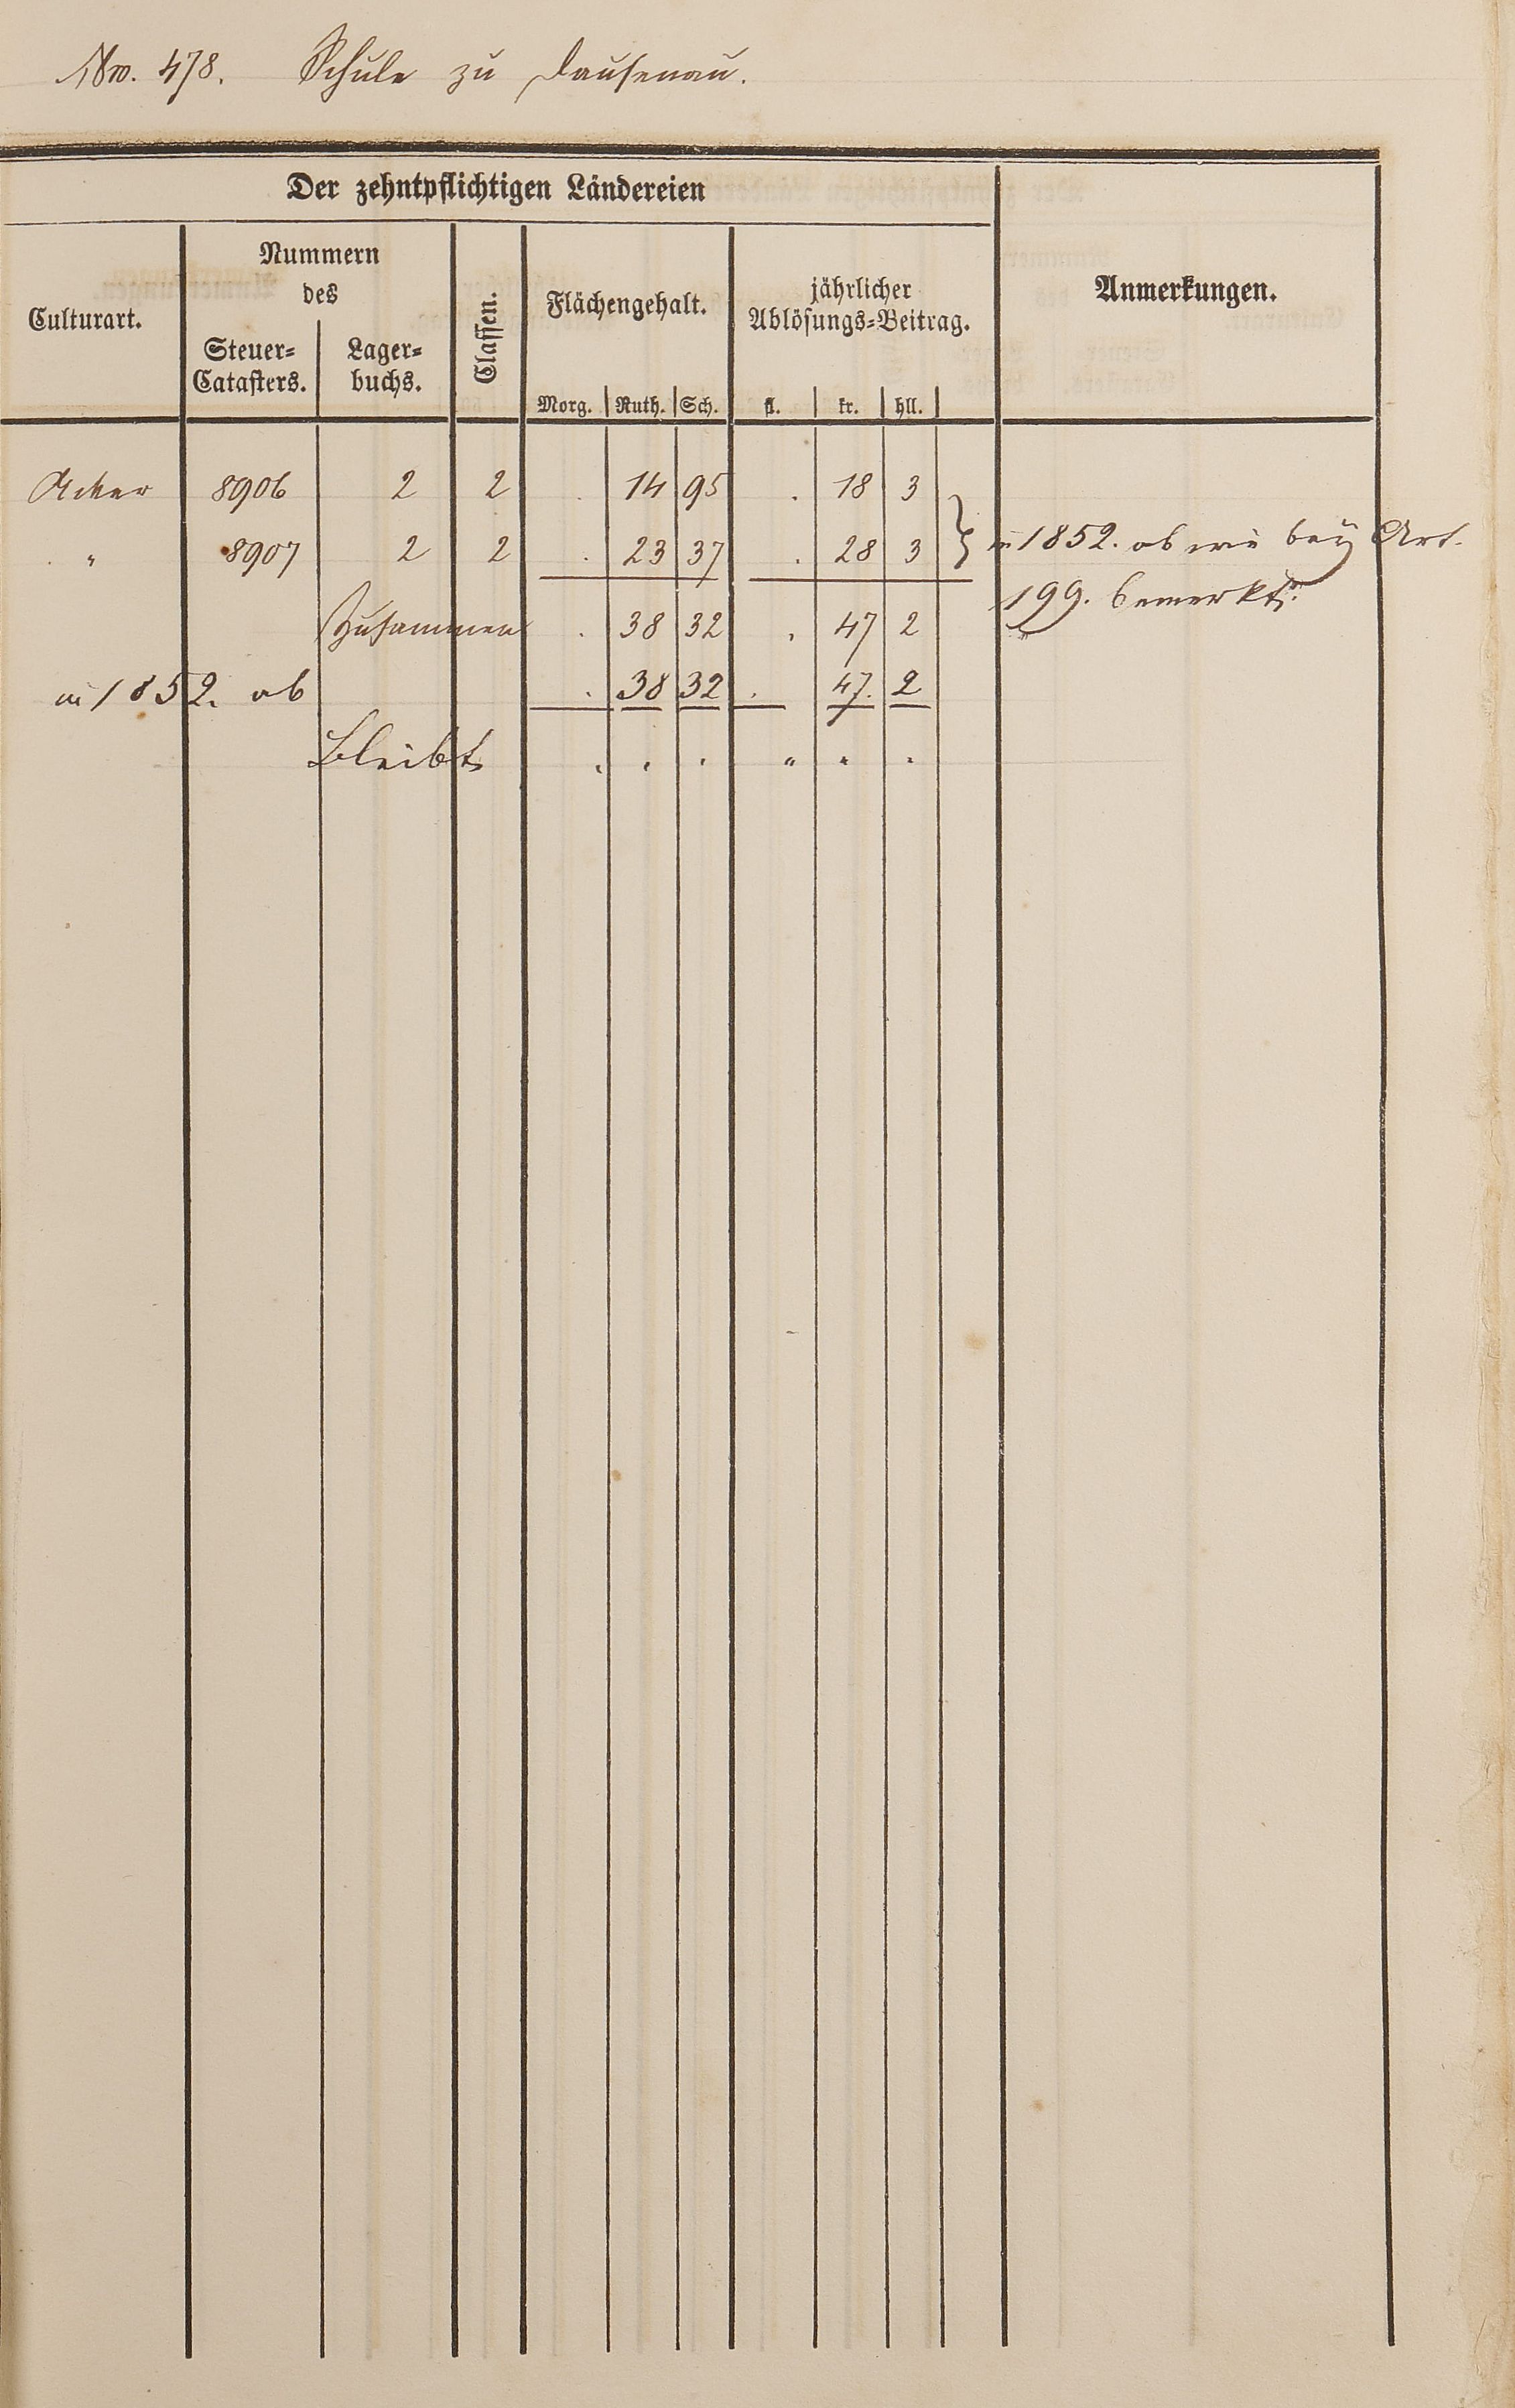 Nro. 478. Schule zu Dausenau.
Der zehntpflichtigen Ländereien
Culturart.
Nummern
des
Steuer=
Catasters.
Lager=
buchs.
Classen.
Flächengehalt.
Morg. Ruth. Sch.
jährlicher
Ablösungs=Beitrag.
fl. kr. hll.
Anmerkungen.
Acker 8906 2 2 . 14 95 . 18 3
" 8907 2 2 . 23 37 . 28 3 } in 1852. ab wie bey Art.
199. bemerkt.
Zusammen . 38 32 . 47 2
in 1852. ab . 38 32 . 47. 2
Bleibt . . . " . .